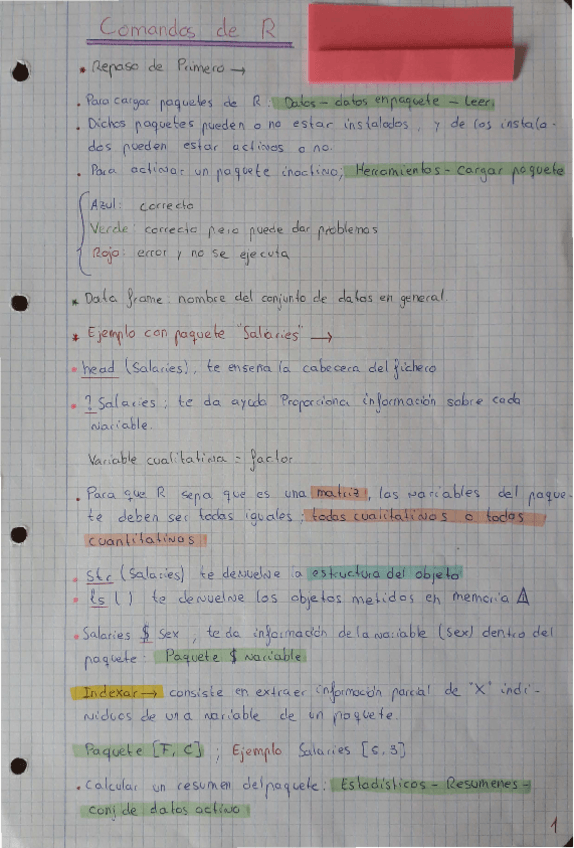 Comandos de R
* Repaso de Primero →
. Para cargar paquetes de R: Datos - datos en paquete - leer.
. Dichos paquetes pueden o no estar instalados, y de los instala-
dos pueden estar activos o no.
. Para activar un paquete inactivo; Herramientas - cargar paquete
Azul: correcto
Verde: correcto pero puede dar problemas
Rojo: error y no se ejecuta
* Data frame: nombre del conjunto de datos en general.
* Ejemplo con paquete "Salaries" →
• head (Salaries), te enseña la cabecera del fichero
• ? Salaries; te da ayuda Proporciona información sobre cada
variable.
Variable cualitativa = factor
. Para que R sepa que es una matriz, las variables del paque-
te deben ser todas iguales; todas cualitativas o todas
cuantitativas.
• str (Salaries) te devuelve la estructura del objeto
• ls ( ) te devuelve los objetos metidos en memoria Δ
• Salaries $ sex, te da información de la variable (sex) dentro del
paquete: Paquete $ variable.
Indexar → consiste en extraer información parcial de "X" indi-
viduos de una variable de un paquete.
Paquete [F, C] ; Ejemplo Salaries [5, 3]
• Calcular un resumen del paquete: Estadísticos - Resúmenes -
conj de datos activo.
1